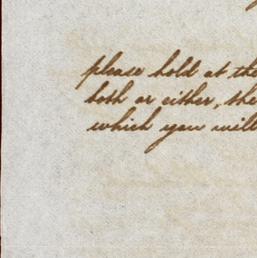 please hold at the
both or either, the
which you will